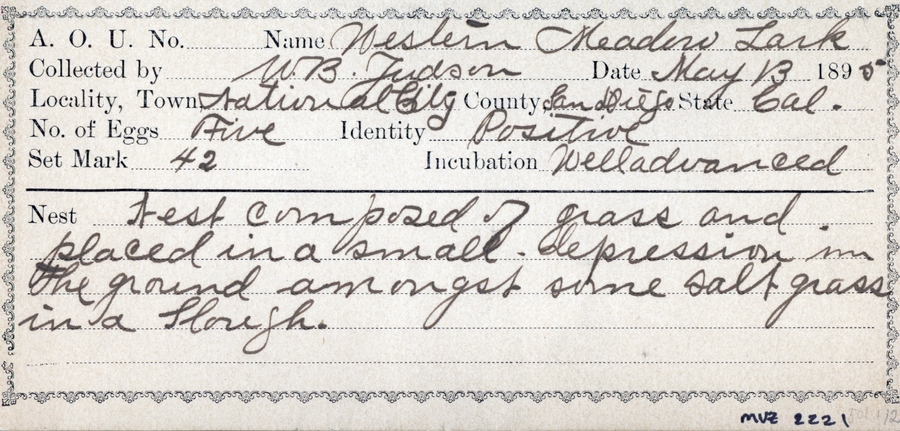 A. O. U. No. Name Western Meadow Lark
Collected by W.B. Judson Date May 13 1895
Locality, Town National City County San Diego State Cal.
No. of Eggs Five Identity Positive
Set Mark 42 Incubation Well advanced
Nest Nest composed of grass and
placed in a small depression in
the ground amongst some salt grass
in a Slough.
MVZ 2221